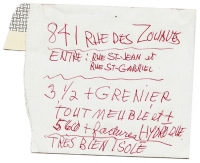 841 RUE DES ZOUAVES
ENTRE: RUE ST-JEAN et
RUE ST-GABRIEL
3 1/2 + GRENIER
TOUT MEUBLÉ et +
560 + factures HYDRO QUE
TRES BIEN ISOLE